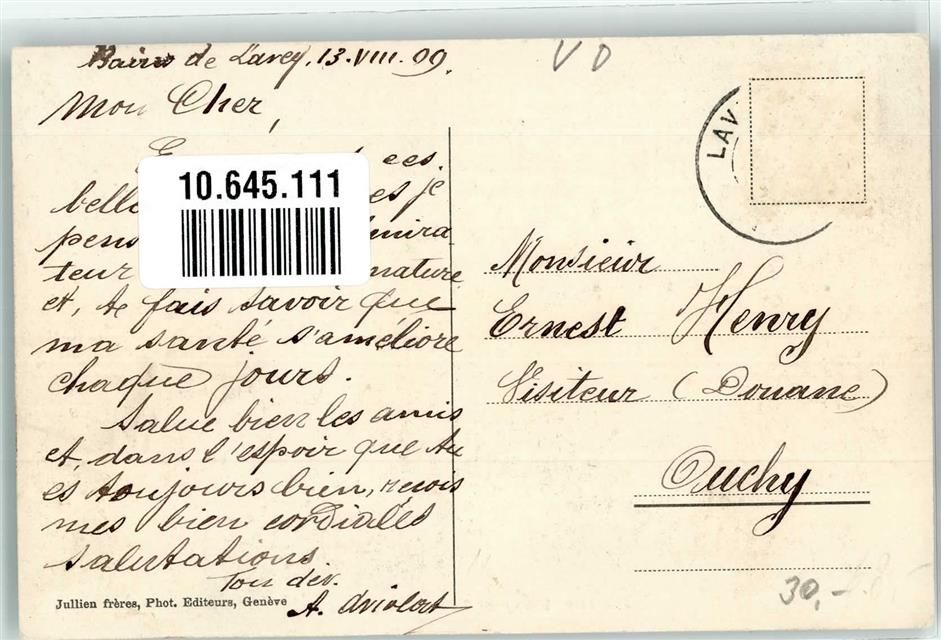 Bains de Lavey, 13.VIII.09.
VD
Mon Cher,
ces
10.645.111
je
mira
teur nature
et, te fais savoir que
ma santé s'améliore
chaque jours.
Salue bien les amis
et, dans l'espoir que tu
es toujours bien, reçois
mes bien cordiales
salutations
Ton dév.
A.
Jullien frères, Phot. Editeurs, Genève
LAV
Monsieur
Ernest Henry
Visiteur (Douane)
Ouchy
30,-